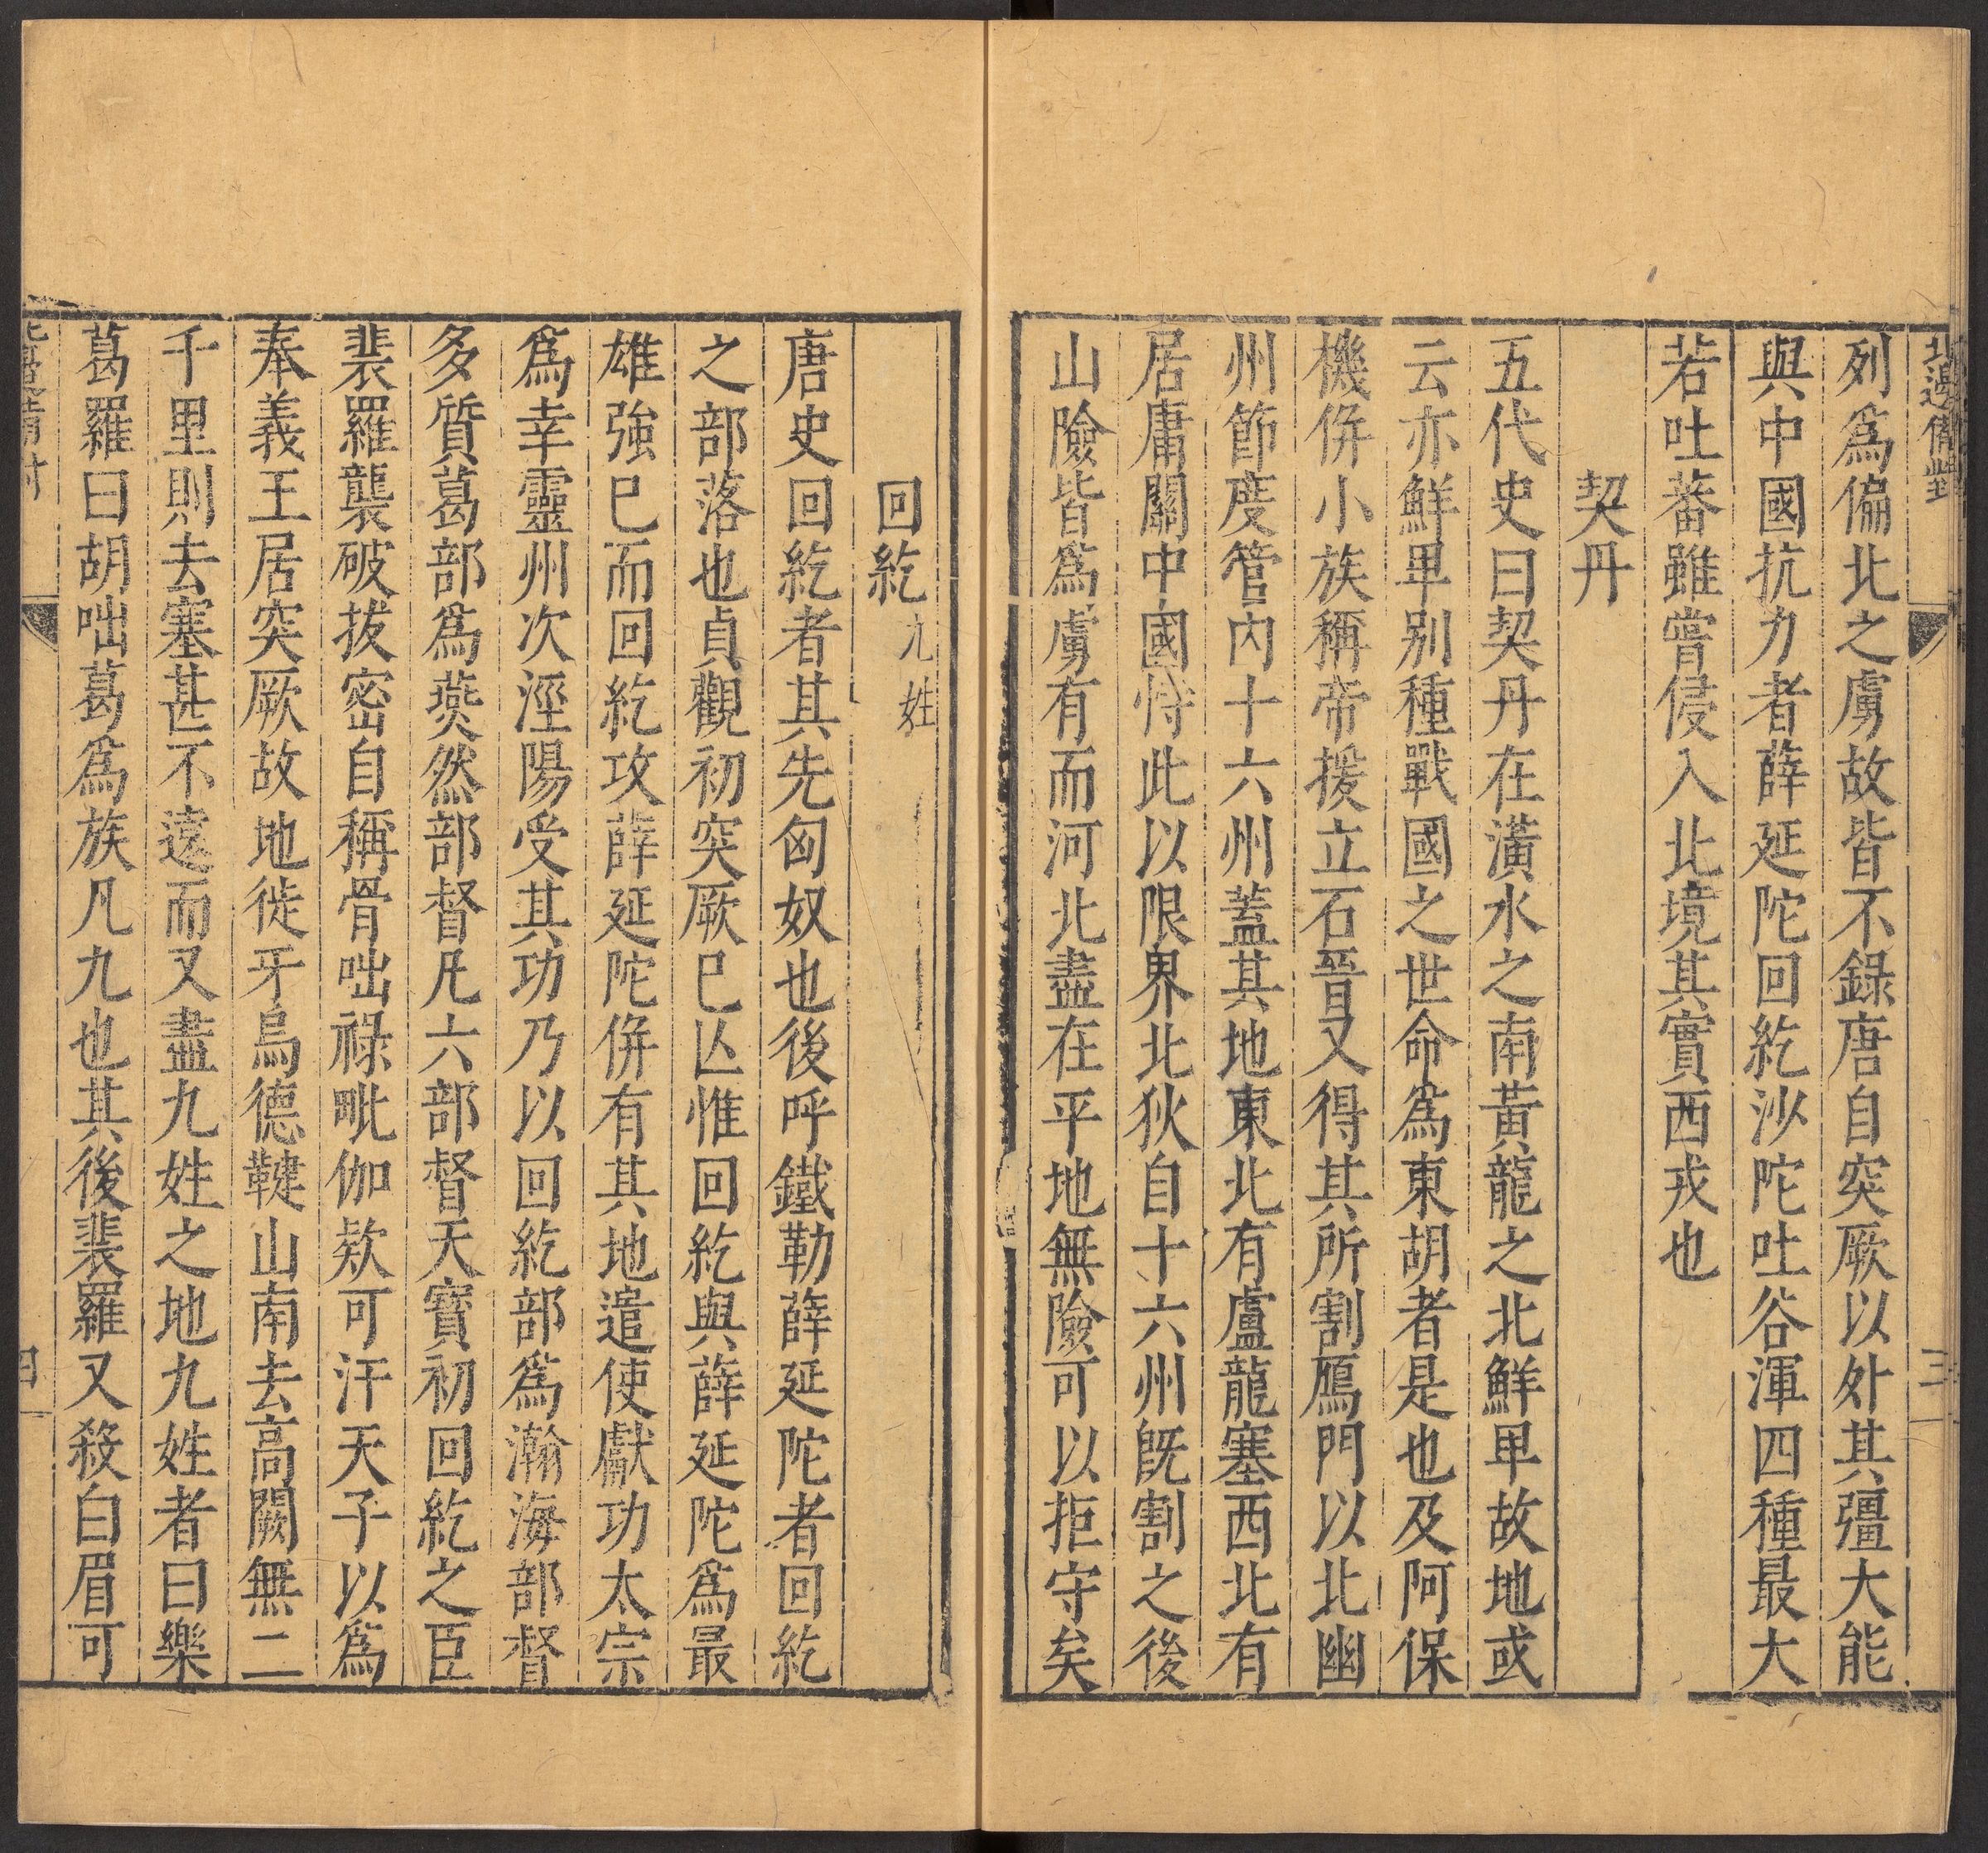 北邊備對 三
列爲偏北之虜故皆不錄唐自突厥以外其彊大能
與中國抗力者薛延陀回紇沙陀吐谷渾四種最大
若吐蕃雖嘗侵入北境其實西戎也
契丹
五代史曰契丹在潢水之南黃龍之北鮮卑故地或
云亦鮮卑别種戰國之世命爲東胡者是也及阿保
機併小族稱帝援立石晉又得其所割鴈門以北幽
州節度管内十六州蓋其地東北有盧龍塞西北有
居庸關中國恃此以限界北狄自十六州旣割之後
山險皆爲虜有而河北盡在平地無險可以拒守矣
回紇九姓
唐史回紇者其先匈奴也後呼鐵勒薛延陀者回紇
之部落也貞觀初突厥已亾惟回紇與薛延陀爲最
雄強已而回紇攻薛延陀併有其地遣使獻功太宗
爲幸靈州次涇陽受其功乃以回紇部爲瀚海部督
多質葛部爲㷼然部督凡六部督天寶初回紇之臣
裴羅襲破拔密自稱骨咄祿毗伽欵可汗天子以爲
奉義王居突厥故地徙牙烏德鞬山南去高闕無二
千里則去塞甚不遠而又盡九姓之地九姓者曰樂
葛羅曰胡咄葛爲族凡九也其後裴羅又殺白眉可